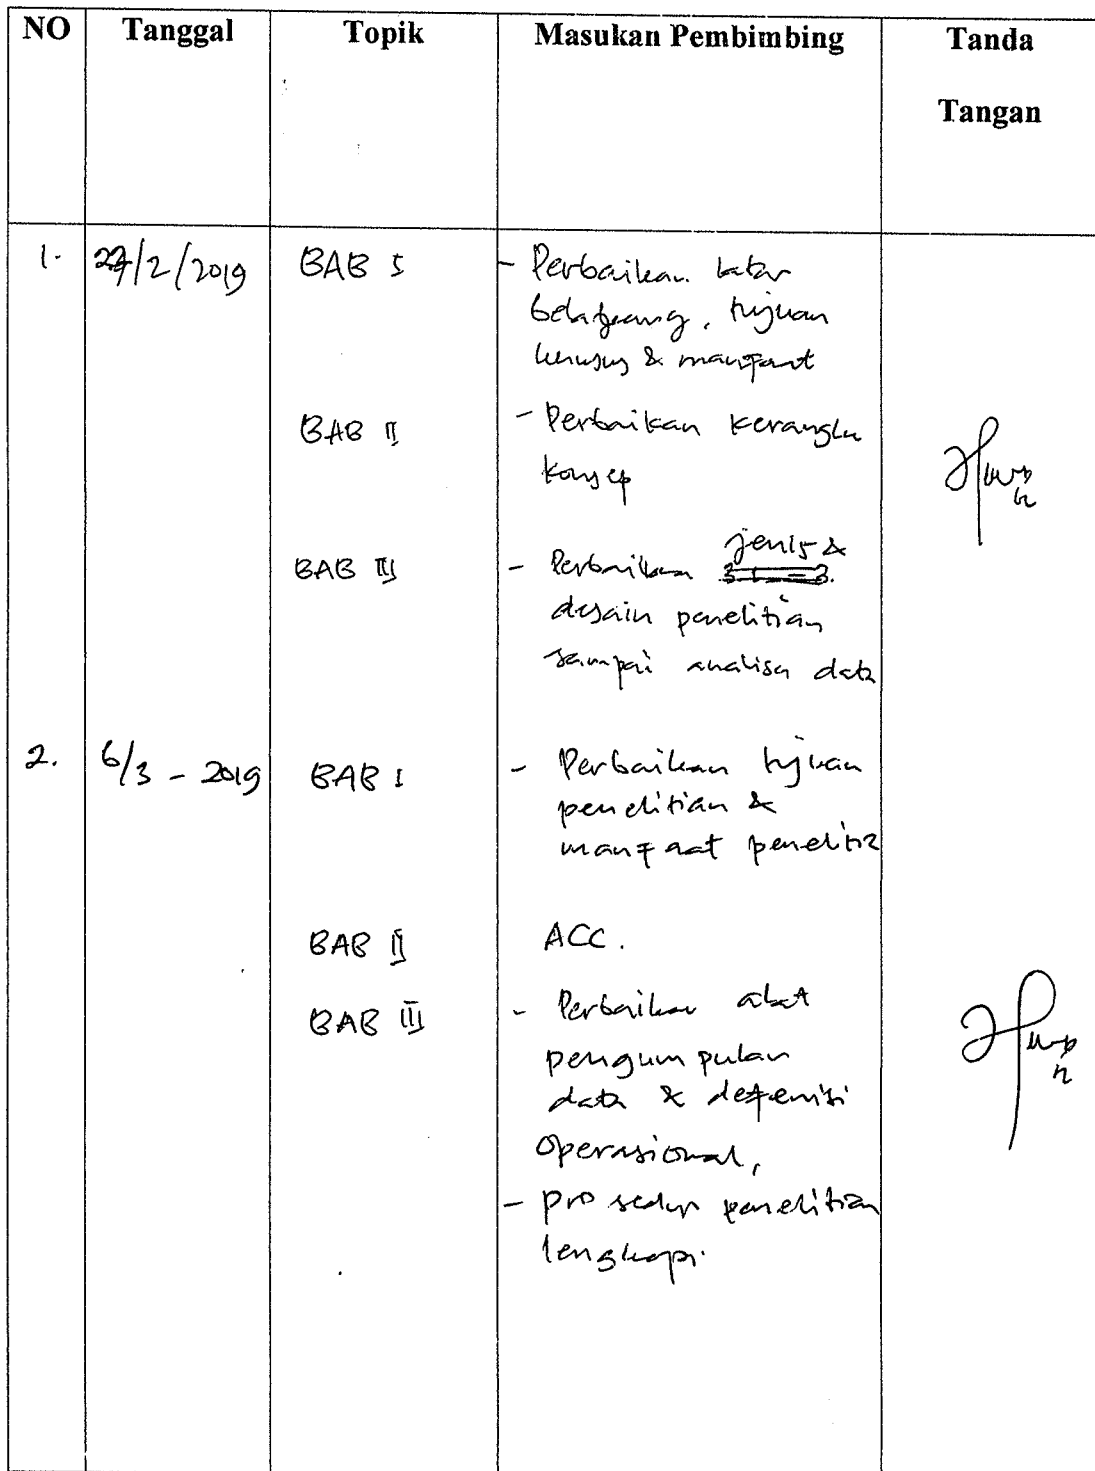 NO Tanggal Topik Masukan Pembimbing Tanda
Tangan
1. 27/2/2019 BAB I - Perbaikan latar
belakang, tujuan
khusus & manfaat
BAB II - Perbaikan kerangka
konsep
BAB III - Perbaikan jenis &
desain penelitian
sampai analisa data
2. 6/3 - 2019 BAB I - Perbaikan tujuan
penelitian &
manfaat penelitia
BAB II ACC.
BAB III - Perbaikan alat
pengumpulan
data & defenisi
operasional,
- prosedur penelitian
lengkapi.